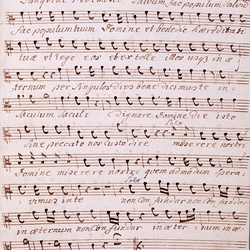 Salvum fac populum
fac populum tuum Domine et benedic hæreditati
tuæ et rege eos et extolle illos usq; in æ
ternum per singulos dies benedicimus te in
sæculum sæculi Dignare Domine die isto
sine peccato nos custodire miserere nostri
Domine miserere nostri quemadmodum spera
vimus in te non confundar non confundar
in æternum non confundar in æternum